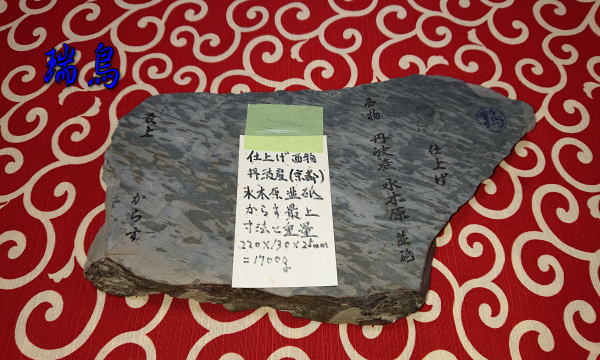 瑞鳥
最上
からす
仕上げ 面物
丹波産(京都)
氷木原並砥
からす最上
寸法と重量
220×130×25mm
=1700g
面物
丹波産 氷木原 並砥
仕上げ